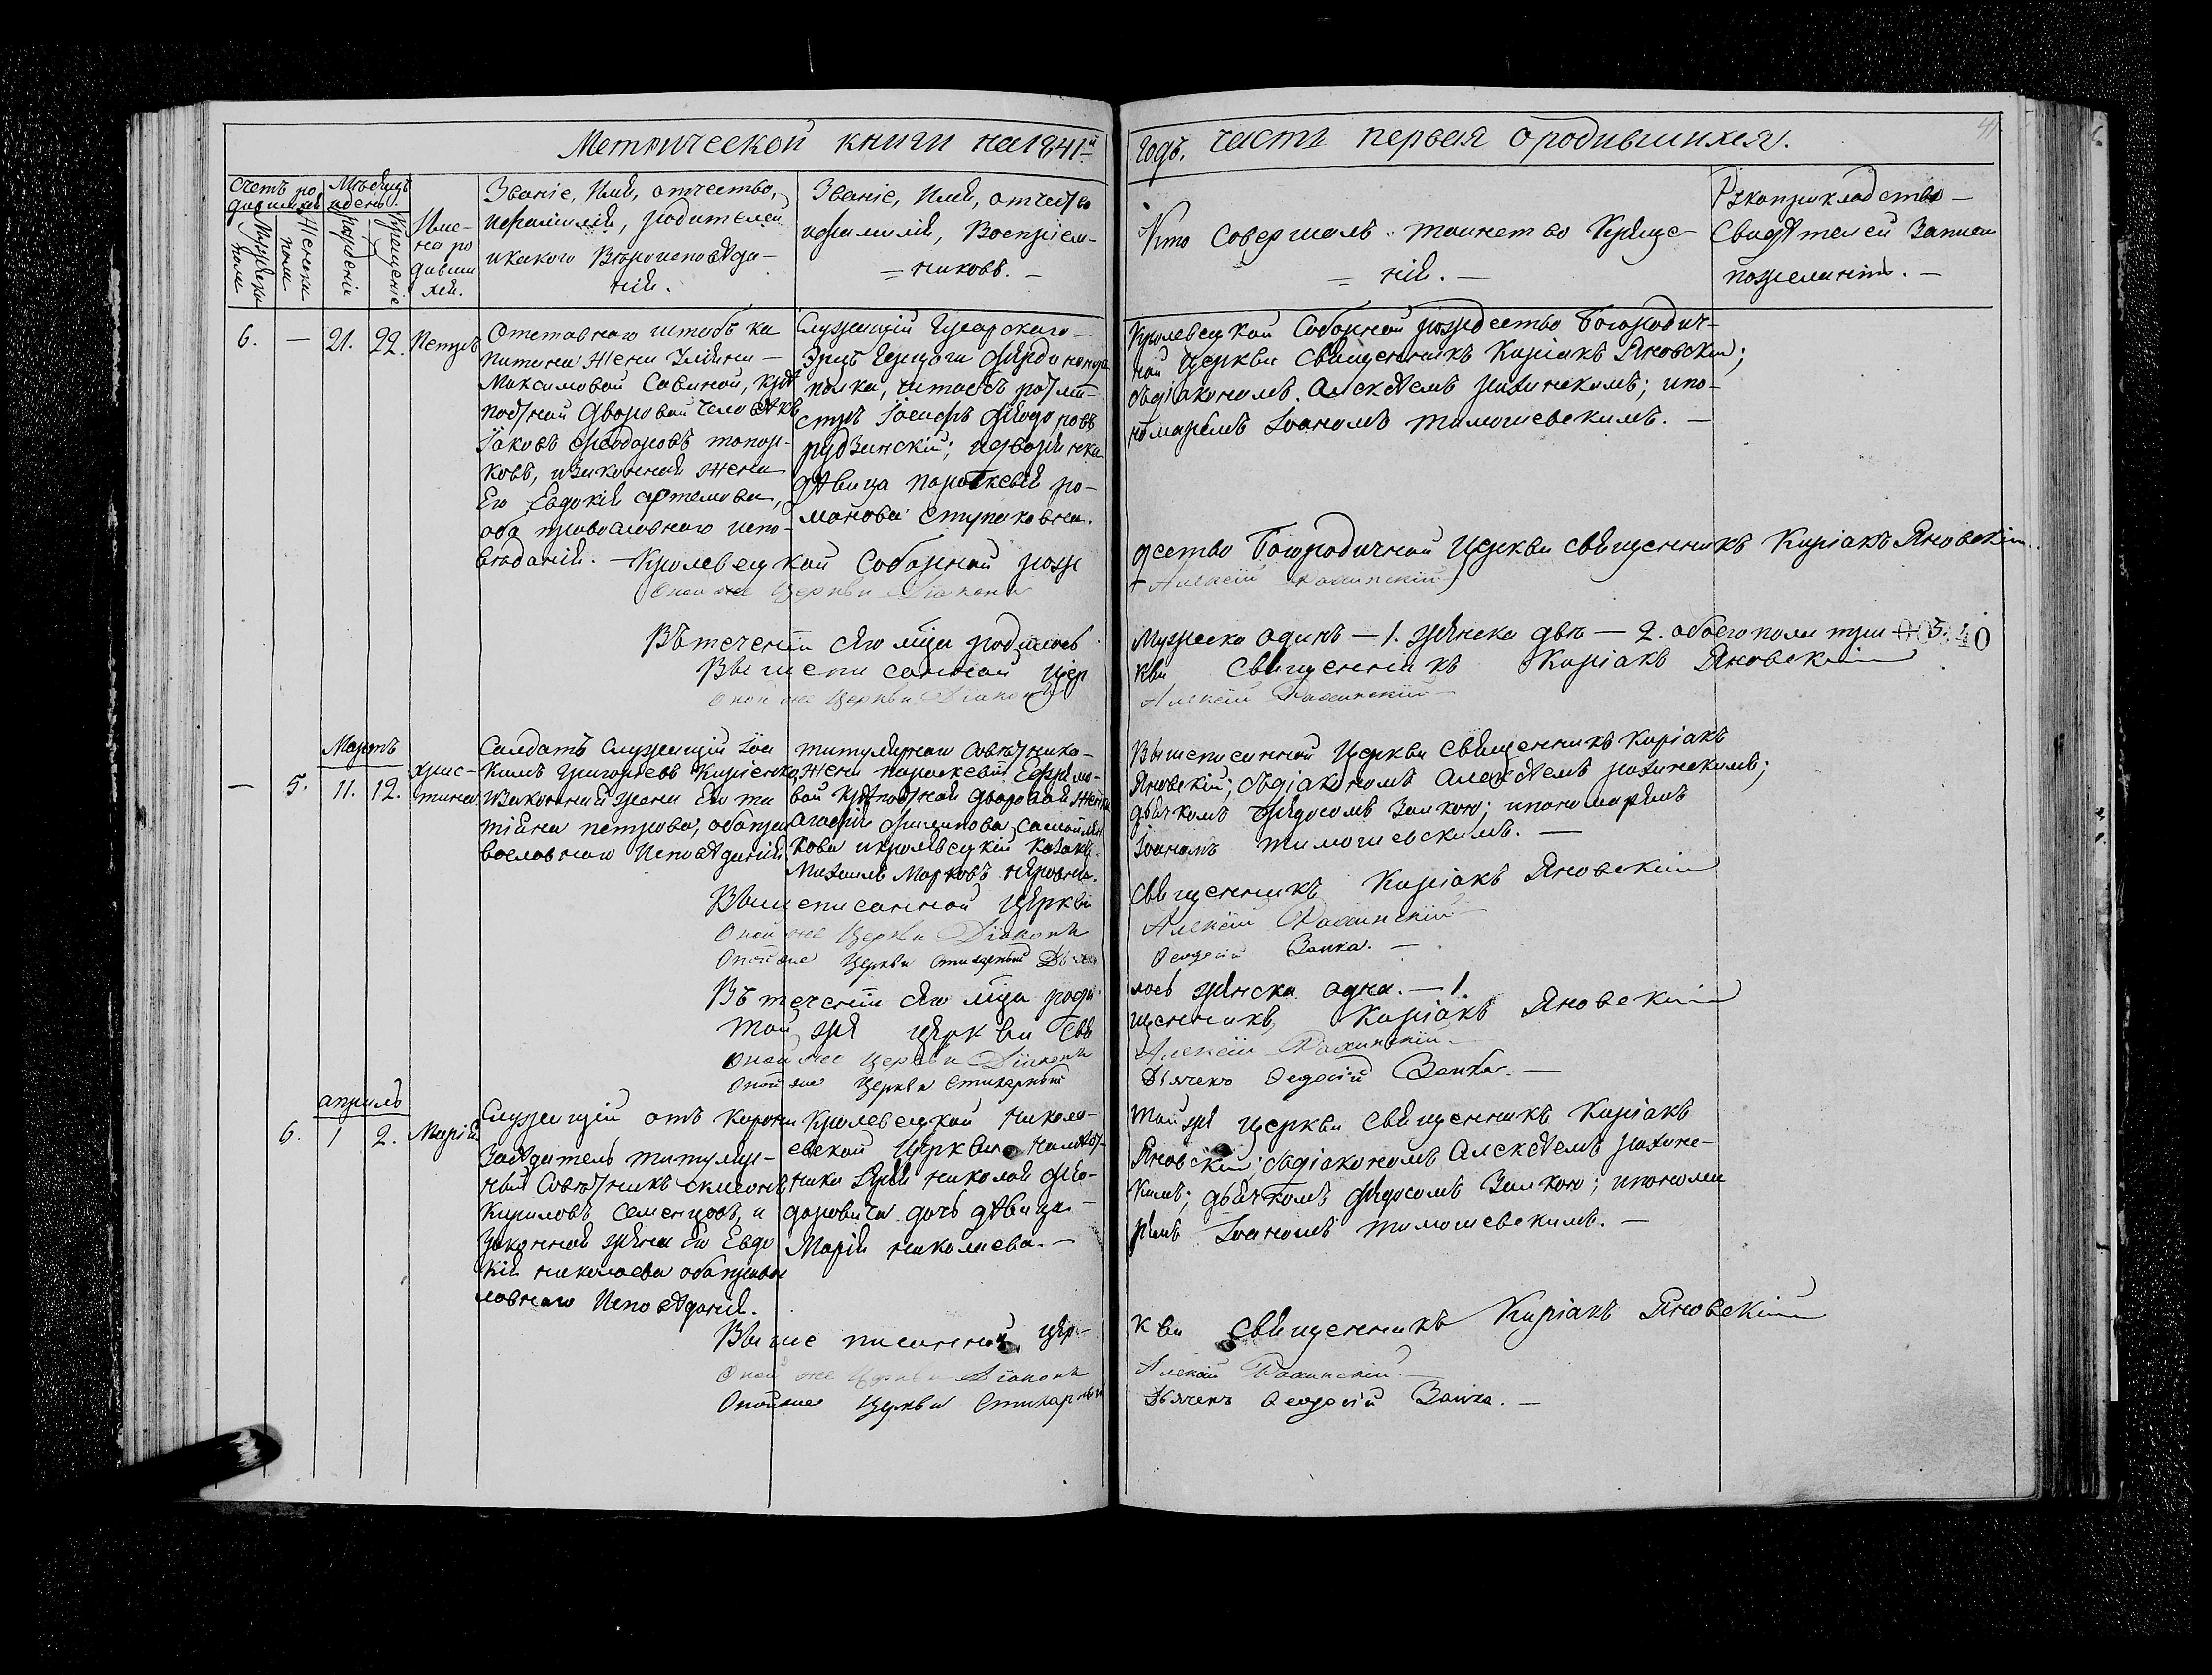 Метрической книги на 1841й
годъ, часть первая о родившихся.
41
Счетъ ро
дившихся
Мужеска
пола
Женска
пола
Мѣсяцъ
и день.
рожденіе
Крещеніе
Име-
на ро
дивши
хся.
Званіе, Имя, отчество,
и фамилія, родителей
и какого Вѣроисповѣда-
нія.
Званіе, Имя, отчество
и фамилія, Воспріем-
никовъ.
Кто Совершалъ таинство Креще-
нія.
Рукоприкладство
Свидѣтелей Записи
по желанію.
6. — 21. 22. Петръ
Отставнаго штабъ ка
питана Жены Улияны
Максимовой Савиной, крѣ
постной дворовой человѣкъ
Іаковъ Феодоровъ топор-
ковъ, и Законная Жена
Его Евдокія Артемова,
оба православнаго испо-
вѣданія.
Служащій Гусарскаго
Эрцъ Герцога Фердинанда
полка, штабсъ ротми-
стръ Іосифъ Фіодоровъ
рудзинскій; и дворянка
дѣвица параскевія ро-
манова Ступаковна.
Кролевецкой Соборной рождество Богородич-
ной Церкви Священникъ Киріакъ Яновскій;
съ діакономъ Алексѣемъ рахинскимъ; и по-
номаремъ Іоаномъ тимошевскимъ.
Кролевецкой Соборной рож
дество Богородичной Церкви священникъ Киріакъ Яновскій
Оной же Церкви Діаконъ
Алексій Рахинскій
Въ теченіи сего мца родилось
Мужеска одинъ — 1. женска двѣ — 2. обоего пола три — 3.
40
Вышеписанной Цер
кви Священникъ Киріакъ Яновскій
Оной же Церкви Діаконъ
Алексій Рахинскій
Мартъ
— 5. 11. 12. Хрис-
тина
Салдатъ Служащій Іоа
кимъ Григорьевъ Киріенко,
и Законная жена Его та
тіяна петрова, оба пра
вославнаго Исповѣданія.
титулярнаго Совѣтника
Жена параскевія Ефимо-
вой крѣпостная дворовая Женка
Агафія Филипова Самойлен
кова и кролевецкій Казакъ
Михаилъ Марковъ
Вышеписанной Церкви Священникъ Киріакъ
Яновскій; съ діакономъ Алексѣемъ рахинскимъ;
дьячкомъ Фіодосомъ Заикою; и пономаремъ
Іоаномъ тимошевскимъ.
Вышеписанной Церкви
Священникъ Киріакъ Яновскій
Оной же Церкви Діаконъ
Алексій Рахинскій
Оной же Церкви Стихарный Дьячекъ
Феодосій Заика.
Въ теченіи сего мца роди
лось женска одна. — 1.
той же церкви Свя
щенникъ Киріакъ Яновскій
Оной же Церкви Діаконъ
Алексій Рахинскій.
Оной же Церкви Стихарный
Дьячекъ Феодосій Заика.
апрѣль
6. 1 2. Марія
Служащій отъ Короны
Засѣдатель титуляр-
ный Совѣтникъ Симеонъ
Кириловъ Семенцовъ, и
Законная жена Его Евдо
кія николаева оба право
славнаго Исповѣданія.
Кролевецкой Никола-
евской Церкви намѣст-
ника Іерея николая Фіо-
доровича дочь дѣвица
Марія николаева.
Той же Церкви Священникъ Киріакъ
Яновскій; съ діакономъ Алексѣемъ рахинс-
кимъ; дьячкомъ Фіодосомъ Заикою; и понома
ремъ Іоаномъ тимошевскимъ.
Выше писанной цер-
кви Священникъ Киріакъ Яновскій
Оной же Церкви Діаконъ
Алексій Рахинскій.
Оной же Церкви Стихарный
Дьячекъ Феодосій Заика.